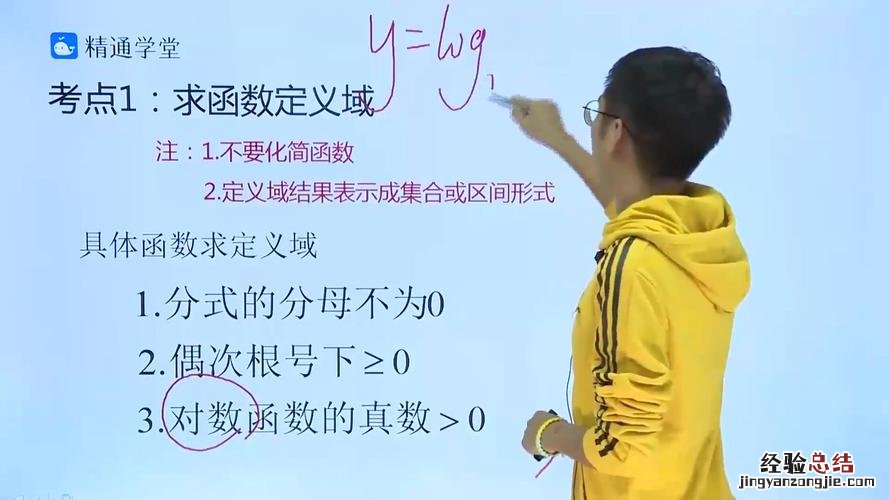 精通学堂
y=log
考点1：求函数定义域
注：1.不要化简函数
2.定义域结果表示成集合或区间形式
具体函数求定义域
1.分式的分母不为0
2.偶次根号下≥0
3.对数函数的真数>0
经验总结
jingyanzongjie.com